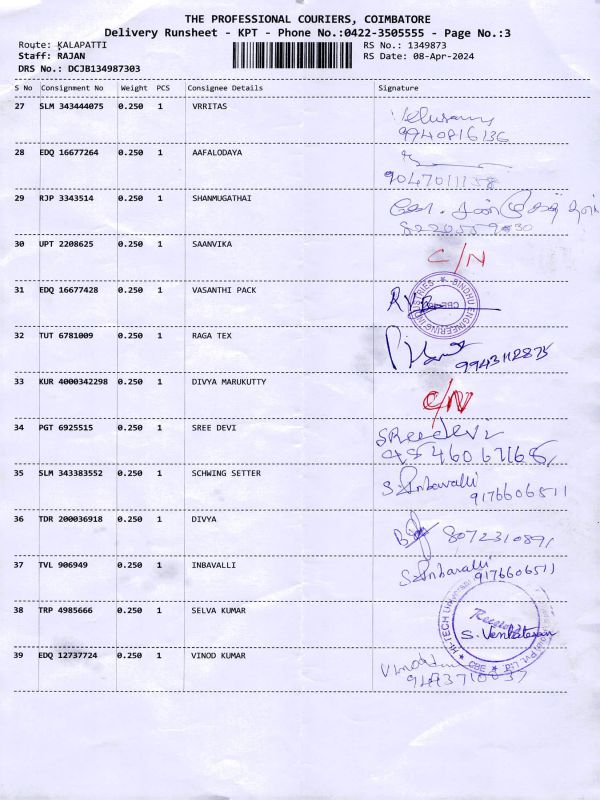 THE PROFESSIONAL COURIERS, COIMBATORE
Delivery Runsheet - KPT - Phone No.:0422-3505555 - Page No.:3
Route: KALAPATTI RS No.: 1349873
Staff: RAJAN RS Date: 08-Apr-2024
DRS No.: DCJB134987303
S No Consignment No Weight PCS Consignee Details Signature
27 SLM 343444075 0.250 1 VRRITAS
9940816136
28 EDQ 16677264 0.250 1 AAFALODAYA
29 RJP 3343514 0.250 1 SHANMUGATHAI
30 UPT 2208625 0.250 1 SAANVIKA C/N
31 EDQ 16677428 0.250 1 VASANTHI PACK
BINDHU ENGINEERING INDUSTRIES CBE
32 TUT 6781009 0.250 1 RAGA TEX
33 KUR 4000342298 0.250 1 DIVYA MARUKUTTY C/N
34 PGT 6925515 0.250 1 SREE DEVI Sreedevi
35 SLM 343383552 0.250 1 SCHWING SETTER S. Inbavalli
9176606511
36 TDR 200036918 0.250 1 DIVYA 8072310891
37 TVL 906949 0.250 1 INBAVALLI S. Inbavalli
9176606511
38 TRP 4985666 0.250 1 SELVA KUMAR
S. Venkatesan
39 EDQ 12737724 0.250 1 VINOD KUMAR